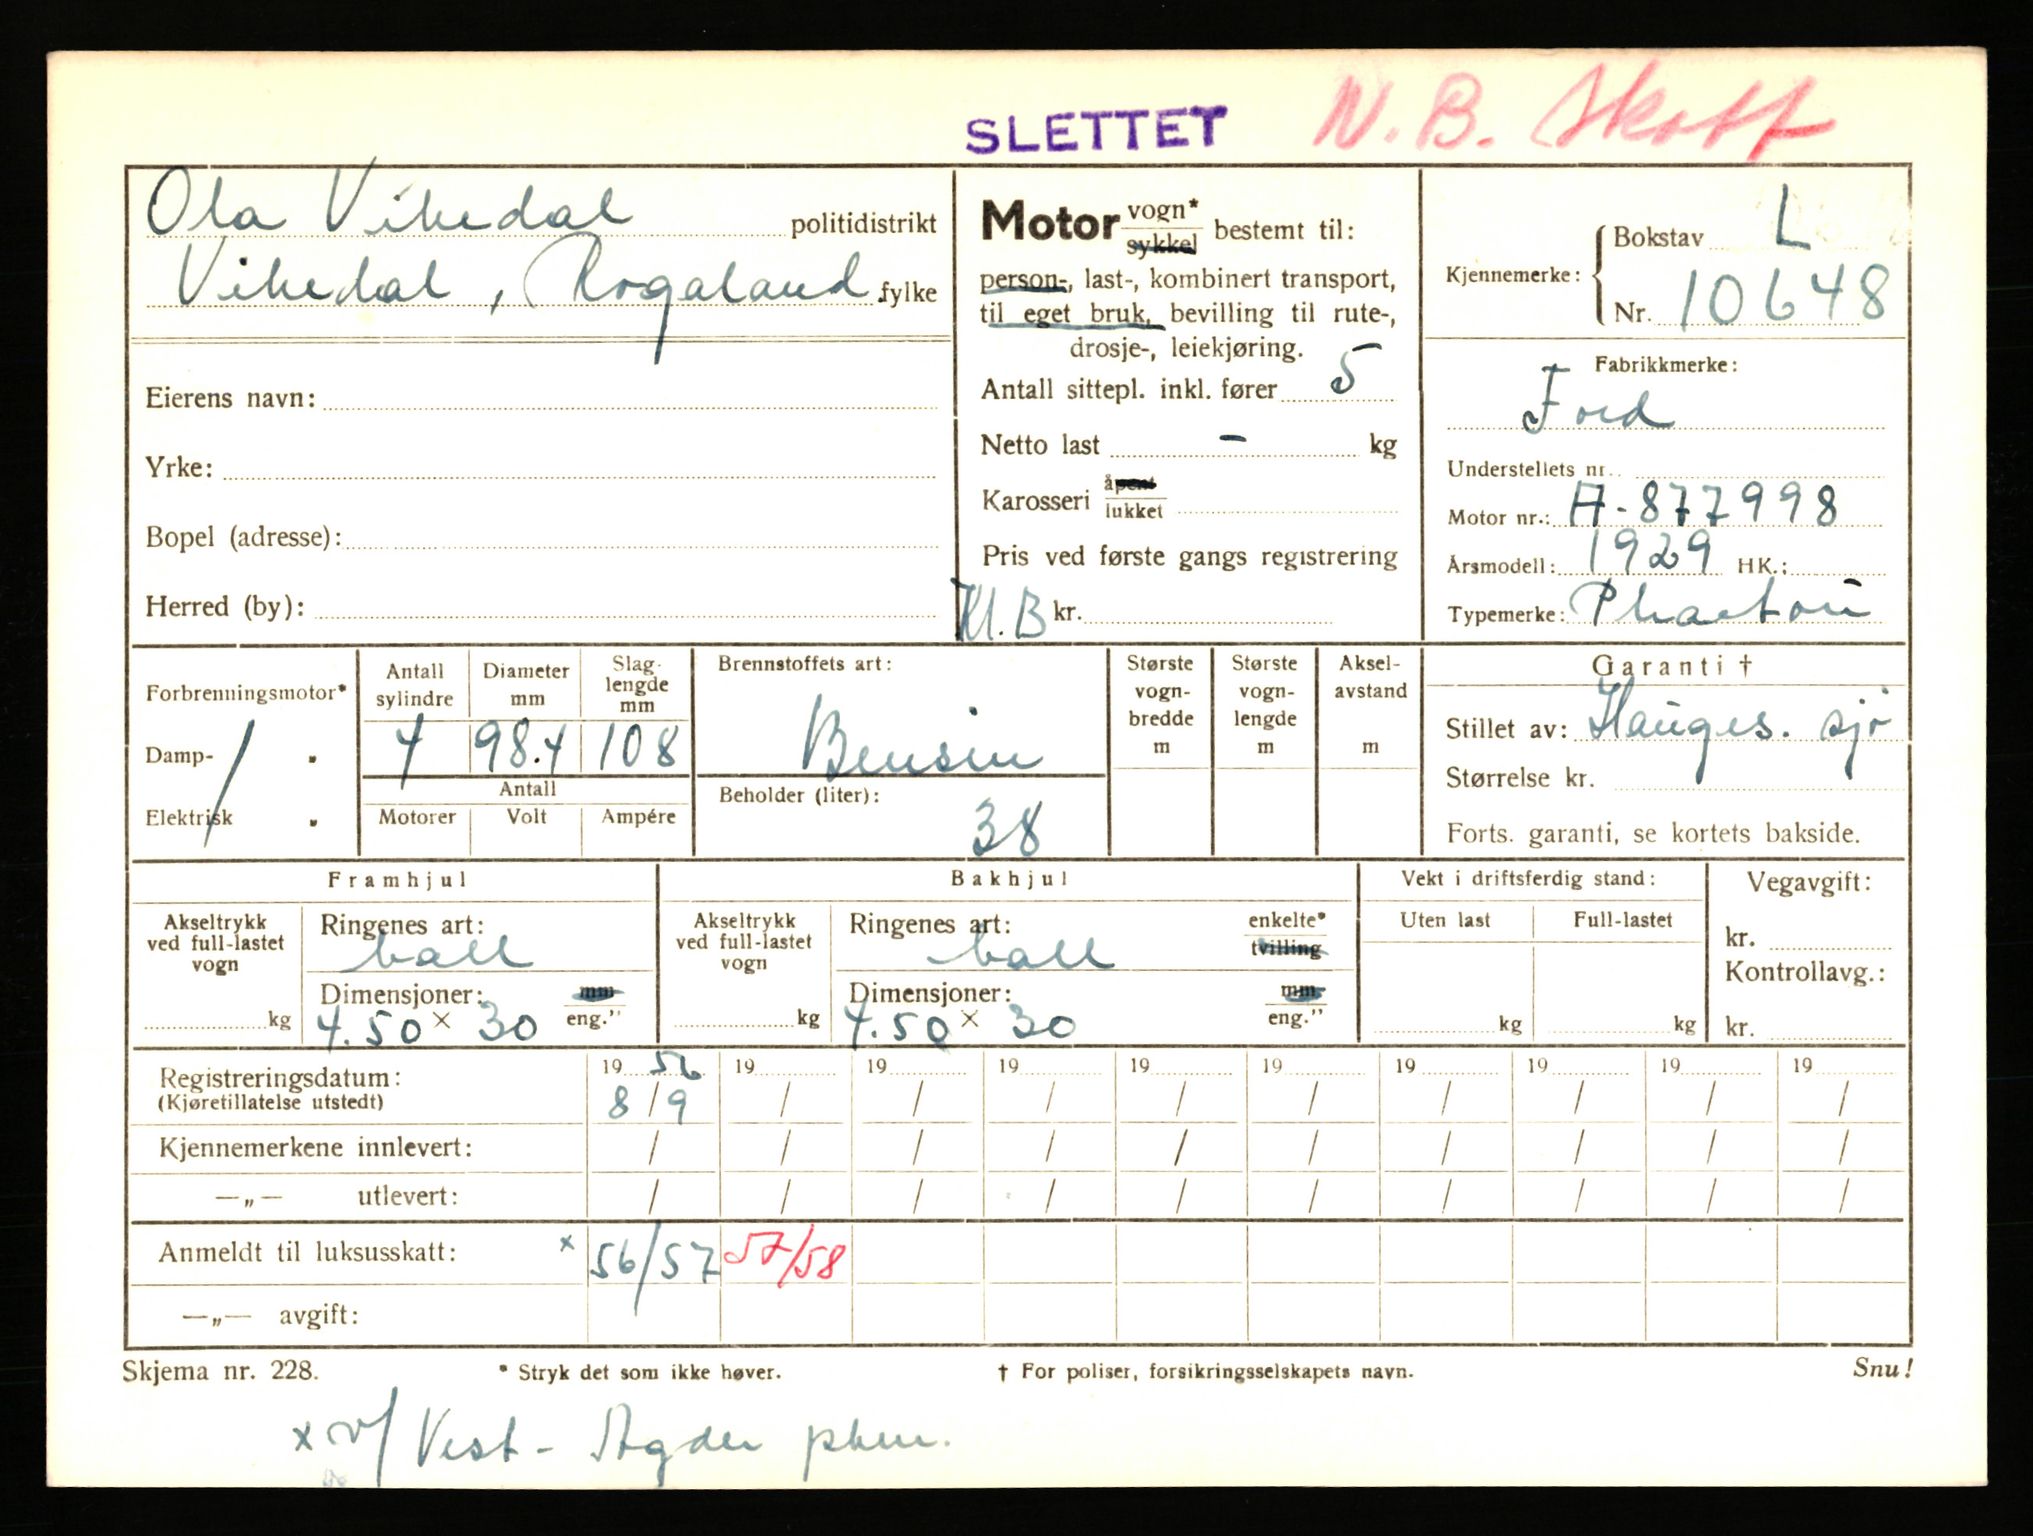 SLETTET N. B. Skatt
Ola Vikedal politidistrikt
Vikedal, Rogaland fylke
Eierens navn:
Yrke:
Bopel (adresse):
Herred (by):
Motor vogn* sykkel bestemt til:
person-, last-, kombinert transport,
til eget bruk, bevilling til rute-,
drosje-, leiekjøring.
Antall sittepl. inkl. fører 5
Netto last – kg
Karosseri åpent lukket
Pris ved første gangs registrering
Kl. B kr.
Kjennemerke: Bokstav L
Nr. 10648
Fabrikkmerke:
Ford
Understellets nr.
Motor nr.: A-877998
Årsmodell: 1929 HK.:
Typemerke: Phaeton
Forbrenningsmotor*
Damp- "
Elektrisk "
Antall sylindre
Diameter mm
Slag-lengde mm
4 98.4 108
Antall
Motorer Volt Ampére
Brennstoffets art:
Bensin
Beholder (liter):
38
Største vogn-bredde m
Største vogn-lengde m
Aksel-avstand m
Garanti †
Stillet av: Hauges. sjø
Størrelse kr.
Forts. garanti, se kortets bakside.
Framhjul
Akseltrykk ved full-lastet vogn
kg
Ringenes art:
ball
Dimensjoner: mm eng."
4.50 × 30
Bakhjul
Akseltrykk ved full-lastet vogn
kg
Ringenes art: enkelte* tvilling
ball
Dimensjoner: mm eng."
4.50 × 30
Vekt i driftsferdig stand:
Uten last Full-lastet
kg kg
Vegavgift:
kr.
Kontrollavg.:
kr.
Registreringsdatum: 19 56 19 19 19 19 19 19 19 19 19
(Kjøretillatelse utstedt) 8/9 / / / / / / / / /
Kjennemerkene innlevert: / / / / / / / / / /
—„— utlevert: / / / / / / / / / /
Anmeldt til luksusskatt: x 56/57 57/58
—„— avgift:
Skjema nr. 228. * Stryk det som ikke høver. † For poliser, forsikringsselskapets navn. Snu!
x v/ Vest-Agder pkm.